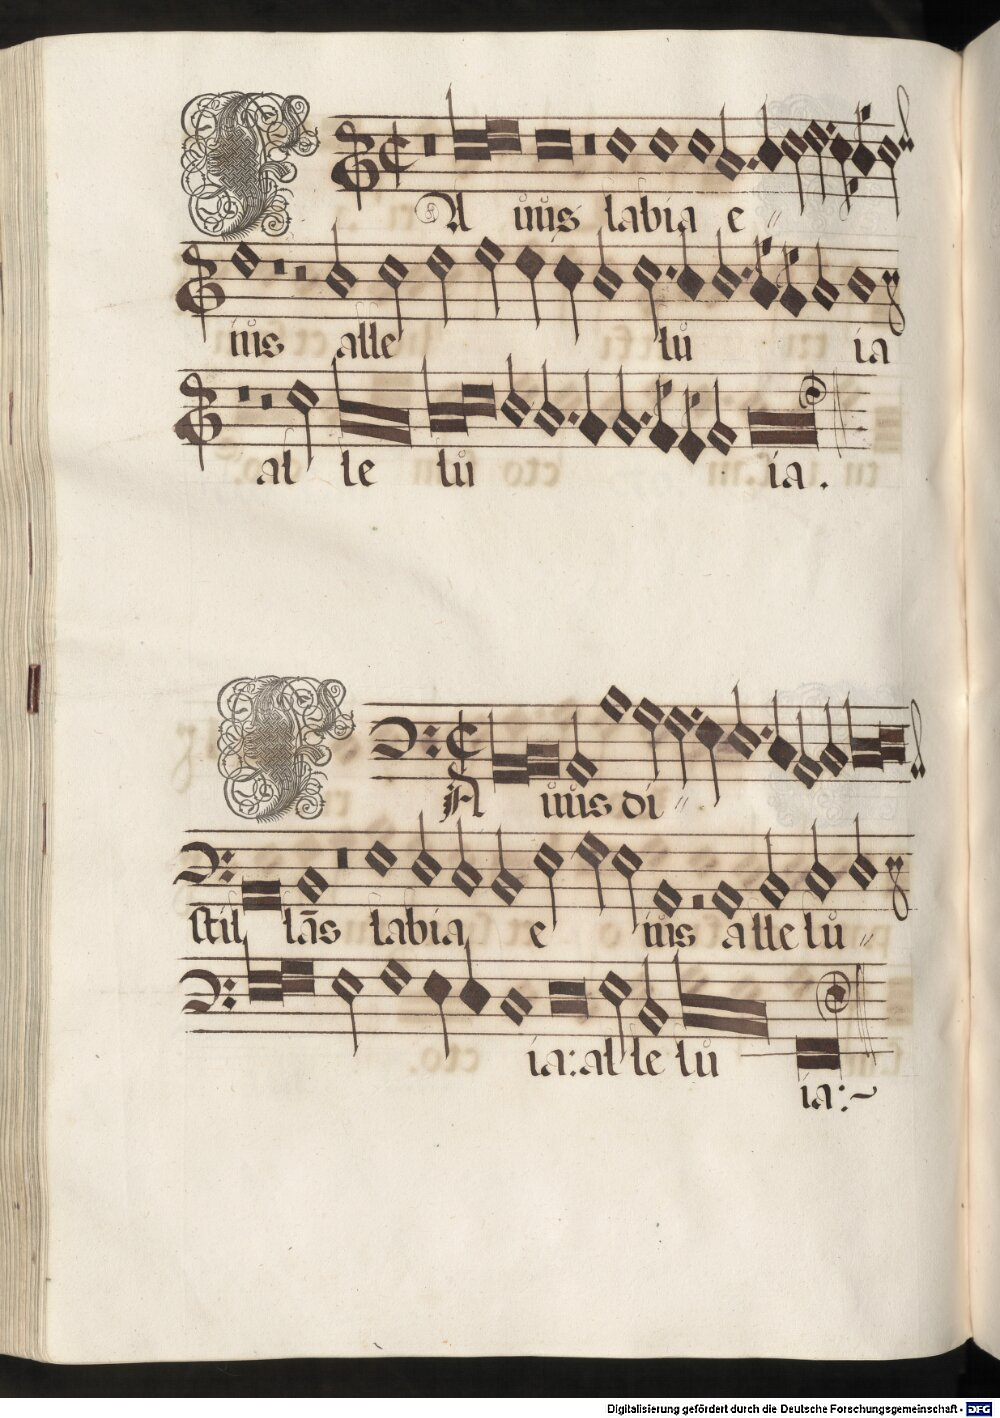 FA uus labia e
ius alle lu ia
al le lu ia.
FA uus di
stil lãs labia e ius allelu
ia: al le lu
ia:~
Digitalisierung gefördert durch die Deutsche Forschungsgemeinschaft - DFG